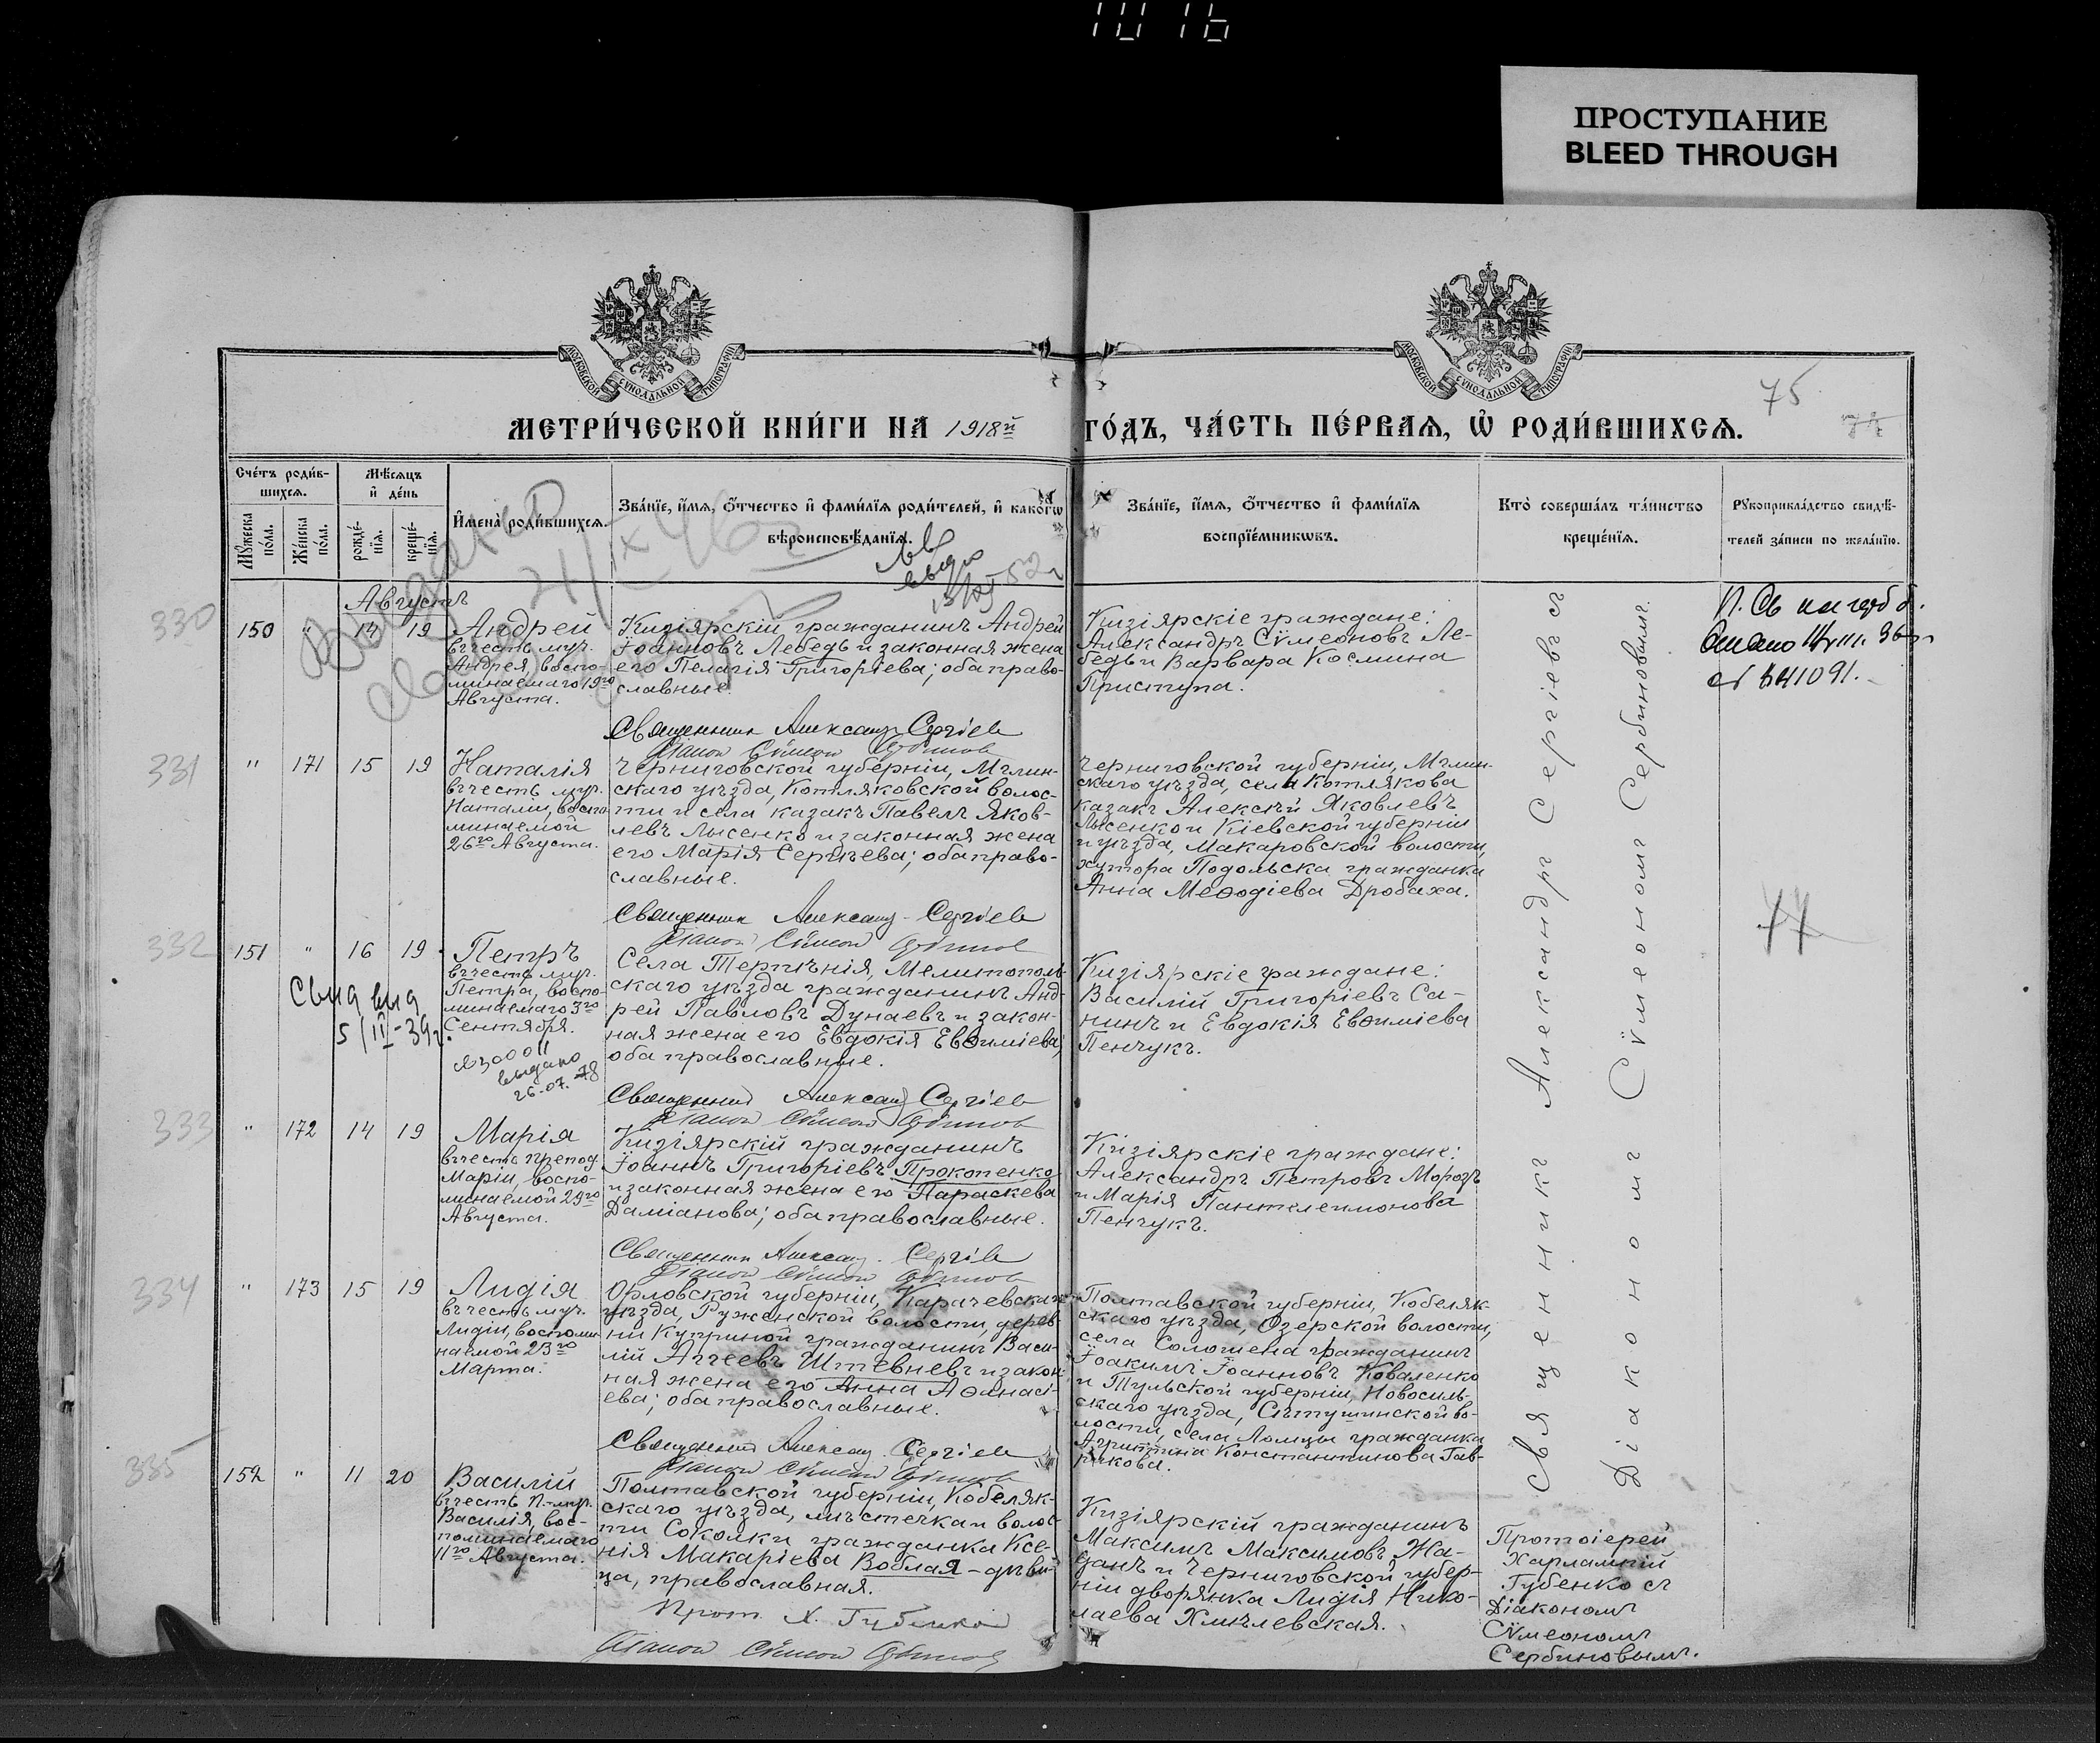 1016
ПРОСТУПАНИЕ
BLEED THROUGH
МОСКОВСКОЙ СѴНОДАЛЬНОЙ ТИПОГРАФІИ
МОСКОВСКОЙ СѴНОДАЛЬНОЙ ТИПОГРАФІИ
75
МЕТРИ́ЧЕСКОЙ КНИ́ГИ НА 1918й ГО́ДЪ, ЧА́СТЬ ПЕ́РВАЯ, Ѡ҆ РОДИ́ВШИХСЯ.
Сче́тъ роди́в-
шихся.
Мѣ́сяцъ
и҆ де́нь
Мꙋ́жеска
по́ла.
Же́нска
по́ла.
рожде́-
нїя.
креще́-
нїя.
И҆мена̀ роди́вшихся.
Зва́нїе, и҆́мя, ѻ҆́тчество и҆ фами́лїя роди́телей, и҆ како́гѡ
вѣроисповѣ́данїя.
Зва́нїе, и҆́мя, ѻ҆́тчество и҆ фами́лїя
воспрїе́мникѡвъ.
Кто̀ соверша́лъ та́инство
креще́нїя.
Рꙋкоприкла́дство свидѣ́-
телей за́писи по жела́нїю.
Августъ
330
150 " 14 19
Андрей
въ честь муч.
Андрея, воспо-
минаемаго 19го
Августа.
Кизіярскій гражданинъ Андрей
Іоанновъ Лебедь и законная жена
его Пелагія Григоріева; оба право-
славные.
Священник Александр Сергіев
Діакон Сѵмеон
Кизіярскіе граждане:
Александръ Сѵмеоновъ Ле-
бедь и Варвара Космина
Приступа.
331
" 171 15 19
Наталія
въ честь муч.
Наталіи, воспо-
минаемой
26го Августа.
Черниговской губерніи, Мглин-
скаго уѣзда, Котляковской волос-
ти и села казакъ Павелъ Яков-
левъ Лысенко и законная жена
его Марія Сергѣева; оба право-
славные.
Священник Александр Сергіев
Діакон Сѵмеон
Черниговской губерніи, Мглин-
скаго уѣзда, села Котлякова
казакъ Алексѣй Яковлевъ
Лысенко и Кіевской губерніи
и уѣзда, Макаровской волости,
хутора Подольска гражданка
Анна Меѳодіева Дробаха.
332
151 " 16 19
Петръ
въ честь муч.
Петра, воспо-
минаемаго 3го
Сентября.
Свид выд
5/IV-39г.
выдано
26.07.78
Села Терпѣнія, Мелитополь-
скаго уѣзда гражданинъ Анд-
рей Павловъ Дунаевъ и закон-
ная жена его Евдокія Евѳиміева;
оба православные.
Священник Александр Сергіев
Діакон Сѵмеон
Кизіярскіе граждане:
Василій Григоріевъ Са-
нинъ и Евдокія Евѳиміева
Пенчукъ.
333
" 172 14 19
Марія
въ честь препод.
Маріи, воспо-
минаемой 29го
Августа.
Кизіярскій гражданинъ
Іоаннъ Григоріевъ Прокопенко
и законная жена его Параскева
Даміанова; оба православные.
Священник Александр Сергіев
Діакон Сѵмеон
Кизіярскіе граждане:
Александръ Петровъ Морозъ
и Марія Пантелеимонова
Пенчукъ.
334
" 173 15 19
Лидія
въ честь муч.
Лидіи, воспоми-
наемой 23го
Марта.
Орловской губерніи, Карачевскаго
уѣзда, Руженской волости, дерев-
ни Куприной гражданинъ Васи-
лій Аггеевъ Штевневъ и закон-
ная жена его Анна Аѳанасі-
ева; оба православные.
Священник Александр Сергіев
Діакон Сѵмеон
Полтавской губерніи, Кобеляк-
скаго уѣзда, Озерской волости,
села Солошена гражданинъ
Іоакимъ Іоанновъ Коваленко
и Тульской губерніи, Новосиль-
скаго уѣзда, Ситушинской во-
лости, села Ломцы гражданка
Агриппина Константинова Гав-
рикова.
335
152 " 11 20
Василій
въ честь п.-муч.
Василія, вос-
поминаемаго
11го Августа.
Полтавской губерніи, Кобеляк-
скаго уѣзда, мѣстечка и волос-
ти Соколки гражданка Ксе-
нія Макаріева Воблая - дѣви-
ца, православная.
Прот. Х. Губенко
Діакон Сѵмеон
Кизіярскій гражданинъ
Максимъ Максимовъ Жа-
данъ и Черниговской губер-
ніи дворянка Лидія Нико-
лаева Хмѣлевская.
Священникъ Александръ Сергіевъ съ
Діакономъ Сѵмеономъ Сербиновымъ.
Протоіерей
Харлампій
Губенко съ
Діакономъ
Сѵмеономъ
Сербиновымъ.